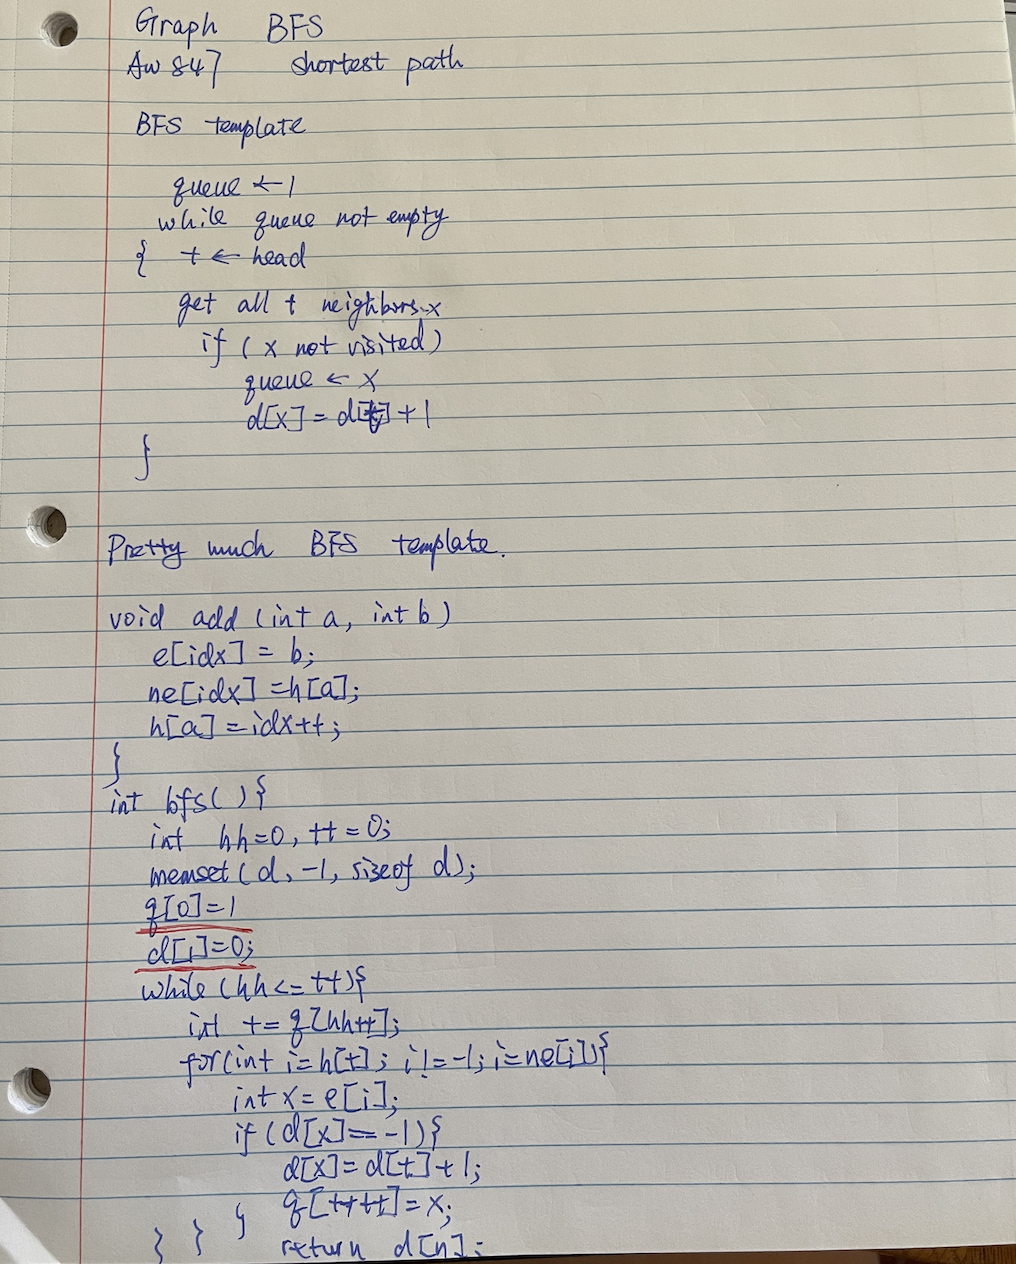 Graph BFS
Aw 847 shortest path
BFS template
queue ← 1
while queue not empty
{ t ← head
get all t neighbors x
if (x not visited)
queue ← x
d[x] = d[t] + 1
}
Pretty much BFS template.
void add (int a, int b)
e[idx] = b;
ne[idx] = h[a];
h[a] = idx++;
}
int bfs() {
int hh=0, tt=0;
memset(d, -1, sizeof d);
q[0]=1
d[1]=0;
while (hh <= tt){
int t= q[hh++];
for(int i=h[t]; i!=-1; i=ne[i]){
int x= e[i];
if (d[x]==-1){
d[x]=d[t]+1;
q[++tt]=x;
} } }
return d[n];